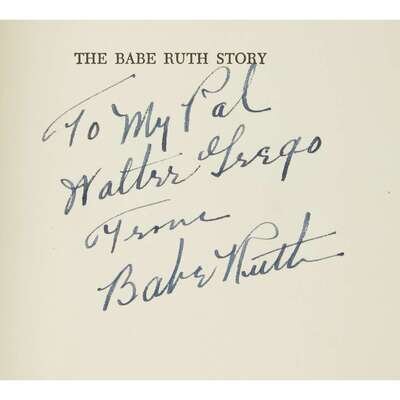 THE BABE RUTH STORY
To My Pal
Walter Grego
From
Babe Ruth